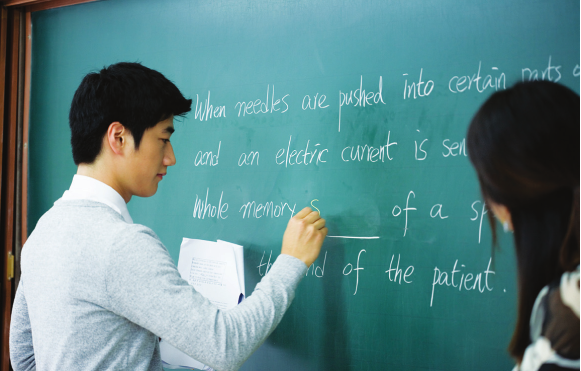 When needles are pushed into certain parts
and an electric current is
Whole memory s____ of a
of the patient.